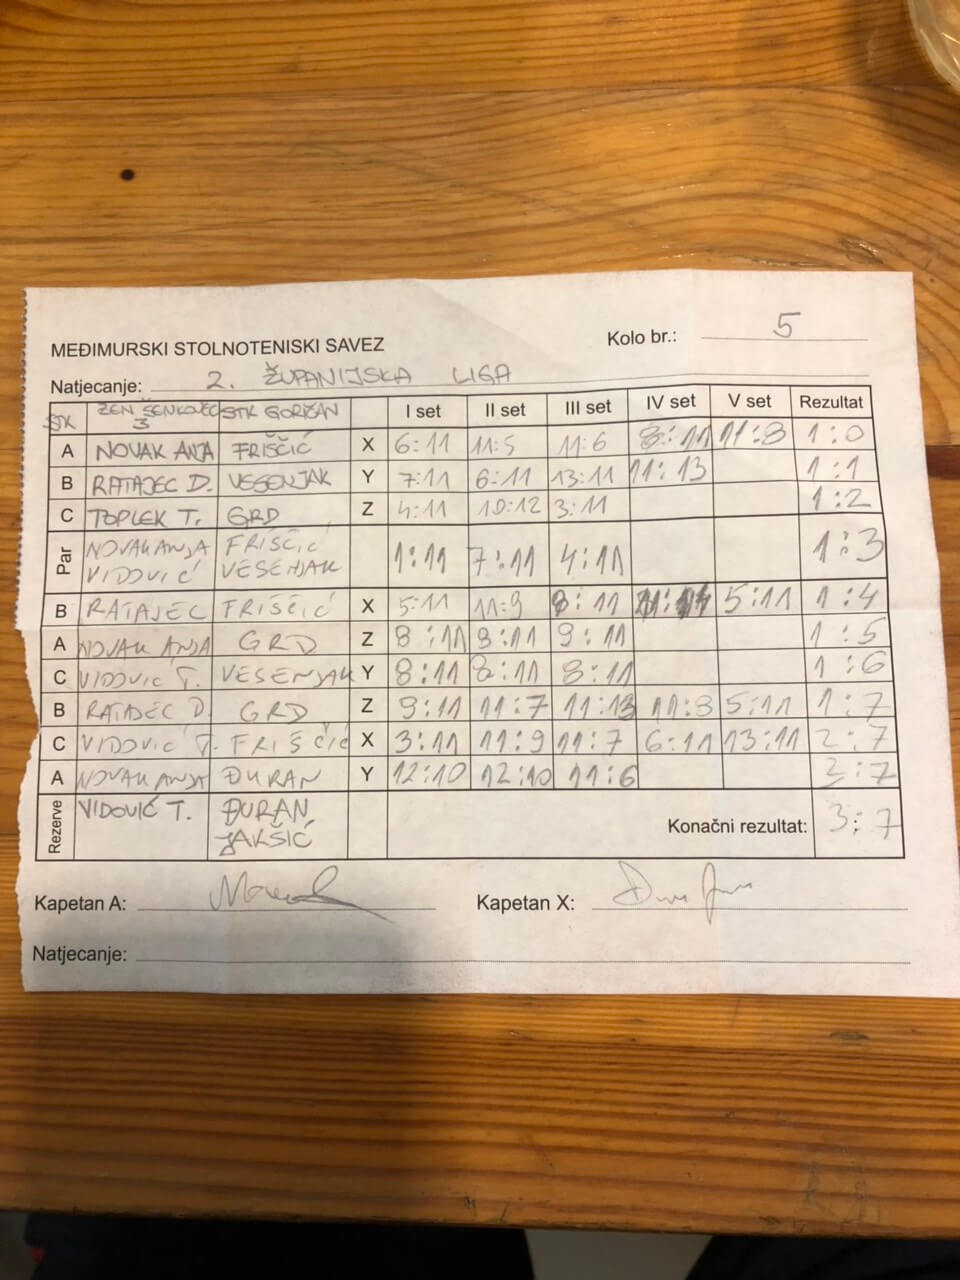 MEĐIMURSKI STOLNOTENISKI SAVEZ Kolo br.: 5
Natjecanje: 2. ŽUPANIJSKA LIGA
STK ŽEN ŠENKOVEC 3 STK GORIČAN I set II set III set IV set V set Rezultat
A NOVAK ANJA FRIŠČIĆ X 6:11 11:5 11:6 8:11 11:8 1:0
B RATAJEC D. VESENJAK Y 7:11 6:11 13:11 11:13 1:1
C TOPLEK T. GRD Z 4:11 10:12 3:11 1:2
Par NOVAK ANJA FRIŠČIĆ 1:11 7:11 4:11 1:3
VIDOVIĆ VESENJAK
B RATAJEC FRIŠČIĆ X 5:11 11:9 8:11 5:11 1:4
A NOVAK ANJA GRD Z 8:11 8:11 9:11 1:5
C VIDOVIĆ T. VESENJAK Y 8:11 8:11 8:11 1:6
B RATAJEC D. GRD Z 9:11 11:7 11:13 11:8 5:11 1:7
C VIDOVIĆ T. FRIŠČIĆ X 3:11 11:9 11:7 6:11 13:11 2:7
A NOVAK ANJA ĐURAN Y 12:10 12:10 11:6 3:7
Rezerve VIDOVIĆ T. ĐURAN Konačni rezultat: 3:7
JAKŠIĆ
Kapetan A: Kapetan X:
Natjecanje: